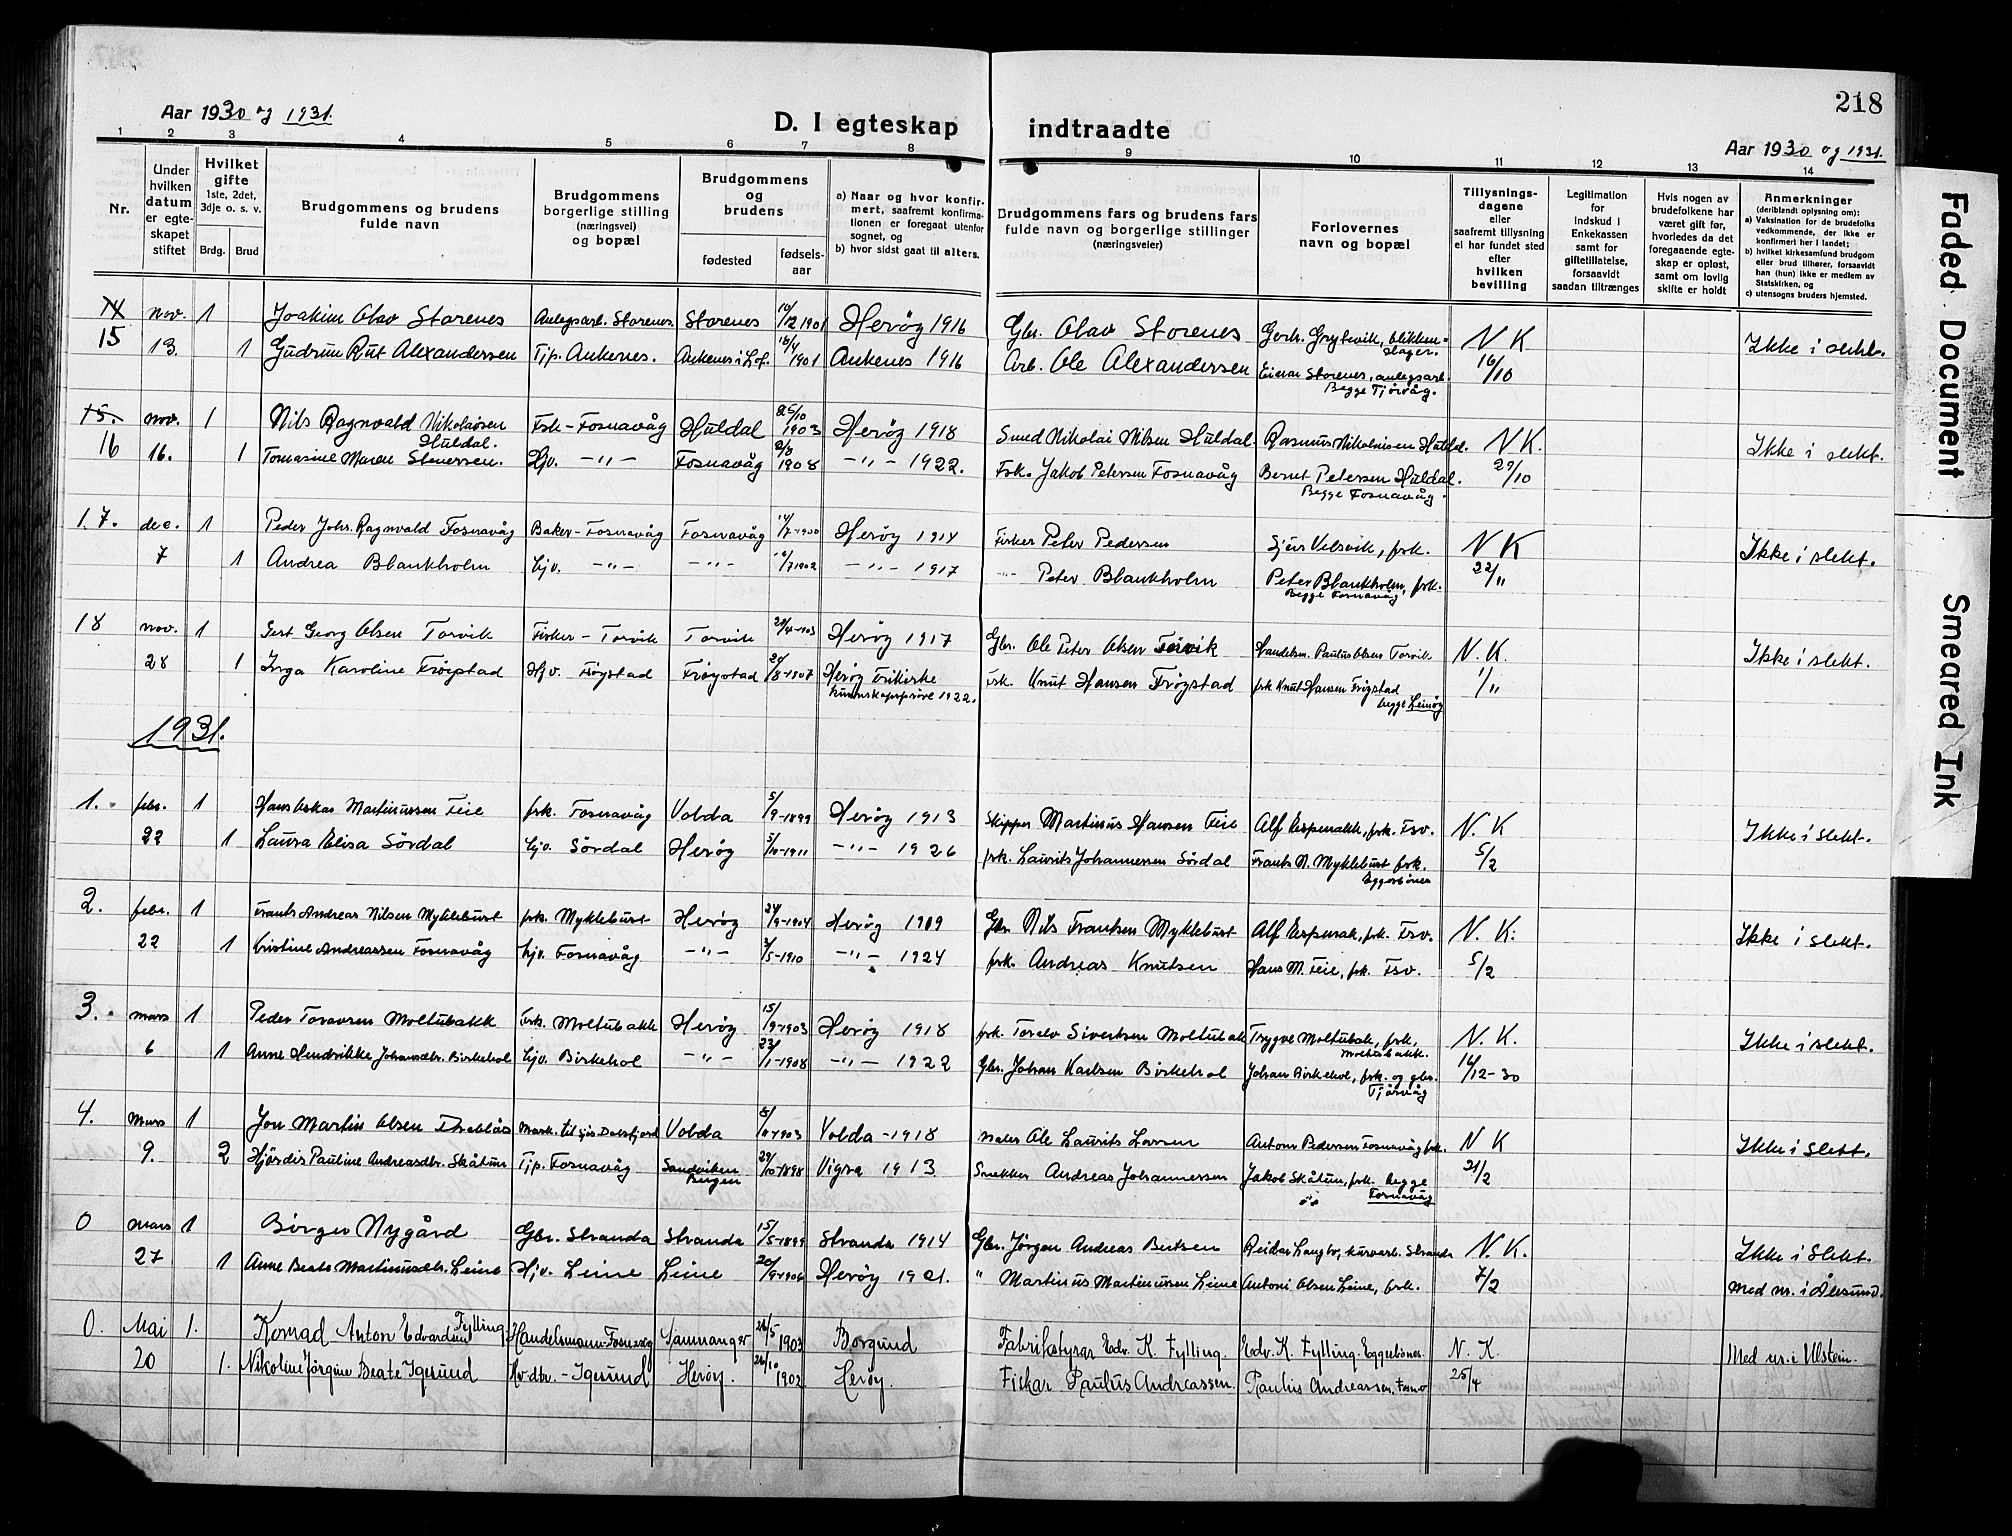 218
Aar 1930 og 1931.
D. I egteskap indtraadte
Aar 1930 og 1931.
1 2 3 4 5 6 7 8 9 10 11 12 13 14
Nr.
Under hvilken datum er egteskapet stiftet
Hvilket gifte 1ste, 2det, 3dje o. s. v.
Brdg. Brud
Brudgommens og brudens fulde navn
Brudgommens borgerlige stilling (næringsvei) og bopæl
Brudgommens og brudens
fødested fødselsaar
a) Naar og hvor konfirmert, saafremt konfirmationen er foregaat utenfor sognet, og
b) hvor sidst gaat til alters.
Brudgommens fars og brudens fars fulde navn og borgerlige stillinger (næringsveier)
Forlovernes navn og bopæl
Tillysningsdagene eller saafremt tillysning ei har fundet sted efter hvilken bevilling
Legitimation for indskud i Enkekassen samt for giftetillatelse, forsaavidt saadan tiltrænges
Hvis nogen av brudefolkene har været gift før, hvorledes da det foregaaende egteskap er opløst, samt om lovlig skifte er holdt
Anmerkninger (deriblandt oplysning om):
a) Vaksination for de brudefolks vedkommende, der ikke er konfirmert her i landet;
b) hvilket kirkesamfund brudgom eller brud tilhører, forsaavidt han (hun) ikke er medlem av Statskirken, og
c) utensogns bruders hjemsted.
14 nov. 1 Joakim Olav Storenes Anlegsarb. Storenes. Storenes 12 1901 Herøy 1916 Gbr. Olav Storenes blikkenslager. N K Ikke i slekt.
15 13. 1 Gudrun Rut Alexandersen Tjp. Ankenes. Ankenes i Lof. 1901 Ankenes 1916 Arb. Ole Alexandersen Einar Storenes, anlegsarb. Begge Tjørvåg. 16/10
15. nov. 1 Nils Ragnvald Nikolaisen Huldal. Fsk - Fosnavåg Huldal 25/10 1903 Herøy 1918 Smed Nikolai Nilsen Huldal Rasmus Nikolaisen Huldal. N K. Ikke i slekt.
16 16. 1 Tomasine Maren Hjv. -"- Fosnavåg 1908 -"- 1922. Fsk. Jakob Petersen Fosnavåg Bernt Petersen Huldal. Begge Fosnavåg. 29/10
17. dec. 1 Peder Johs. Ragnvald Fosnavåg Baker - Fosnavåg Fosnavåg /7-1900 Herøy 1914 Fisker Peter Pedersen Velsvik, fsk. N K Ikke i slekt.
7 1 Andrea Blankholm Hjv. -"- -"- /7 1902 -"- 1917 -"- Peter Blankholm Peter Blankholm, fsk. Begge Fosnavåg 22/11
18 nov. 1 Gert Georg Olsen Torvik Fisker - Torvik Torvik 1903 Herøy 1917 Gbr. Ole Peter Olsen Torvik Handelsm. Paulus Olsen Torvik N. K. Ikke i slekt.
28 1 Inga Karoline Frøystad Hjv. Frøystad Frøystad 20/8-1907 Herøy Frikirke kunnskapsprøve 1922. Fsk. Knut Hansen Frøystad fsk Knut Hansen Frøystad begge Leinøy 1/11
1931.
1. febr. 1 Hans Oskar Martinussen Teie fsk. Fosnavåg Volda 5/9-1899 Herøy 1913 Skipper Martinus Hansen Teie Alf Espenakk, fsk. Fsv. N. K Ikke i slekt.
22 1 Laura Elisa Sördal hjv. Sördal Herøy 5/10-1911 -"- 1926 fsk. Laurits Johannessen Sördal Frants N. Myklebust fsk. Eggesbönes 5/2
2. febr. 1 Frants Andreas Nilsen Myklebust fsk. Myklebust Herøy 24/9-1904 Herøy 1919 Gbr. Nils Frantsen Myklebust Alf Espenak, fsk. Fsv. N. K. Ikke i slekt.
22 1 Kristine Andreassen Fosnavåg hjv. Fosnavåg -"- /5-1910 -"- 1924 fsk. Andreas Knutsen Hans M. Teie, fsk. Fsv. 5/2
3. mars 1 Peder Toralvsen Moltubakk Fsk. Moltubakk Herøy 15/9-1903 Herøy 1918 fsk. Toralv Sivertsen Moltubakk Trygve Moltubak, fsk. Moltubakk. N. K. Ikke i slekt.
6 1 Anne Hendrikke Johansdtr. Birkehol hjv. Birkehol -"- 23/1-1908 -"- 1922 Gbr. Johan Karlsen Birkehol Johan Birkehol, fsk. og gbr. Tjørvåg /12-30
4. Mars 1 Jon Martin Olsen Dalsfjord Volda 1903 Volda - 1918 Maler Ole Laurits Larsen Anton Pedersen Fosnavåg fsk. N K Ikke i slekt.
9. 2 Hjördis Pauline Andreasdtr. Skåtun Tjp. Fosnavåg Sandviken Bergen 29/10-1898 Vigra 1913 Snekker Andreas Johannessen Jakob Skåtun, fsk. begge Fosnavåg 21/2
0 mars 1 Börger Nygård Gbr. Stranda Stranda 15/5-1899 Stranda 1914 Gbr. Jörgen Andreas Bertsen Reidar Langlo, kurvarb. Stranda N. K. Ikke i slekt.
27 1 Anne Beate Martinusdtr. Leine Hjv. Leine Leine 20/9-1906 Herøy 1921. " Martinus Martinussen Leine Antoni Olsen Leine, fsk. 7/2 Med nr. i Ålesund.
0. Mai 1. Konrad Anton Edvardsen Fylling Handelsmann-Fosnavåg Samnanger 26/5 1903 Borgund Fabrikstyrar Edv. K. Fylling. Edv. K. Fylling. Eggesbönes. N. K. Med nr. i Ulstein.
20 1. Nikoline Jörgine Beate Igesund Hv-dtr. - Igesund Herøy. 26/10 1902 Herøy. Fiskar Paulus Andreassen. Paulus Andreassen. Fosnv 25/4
Faded Document
Smeared Ink